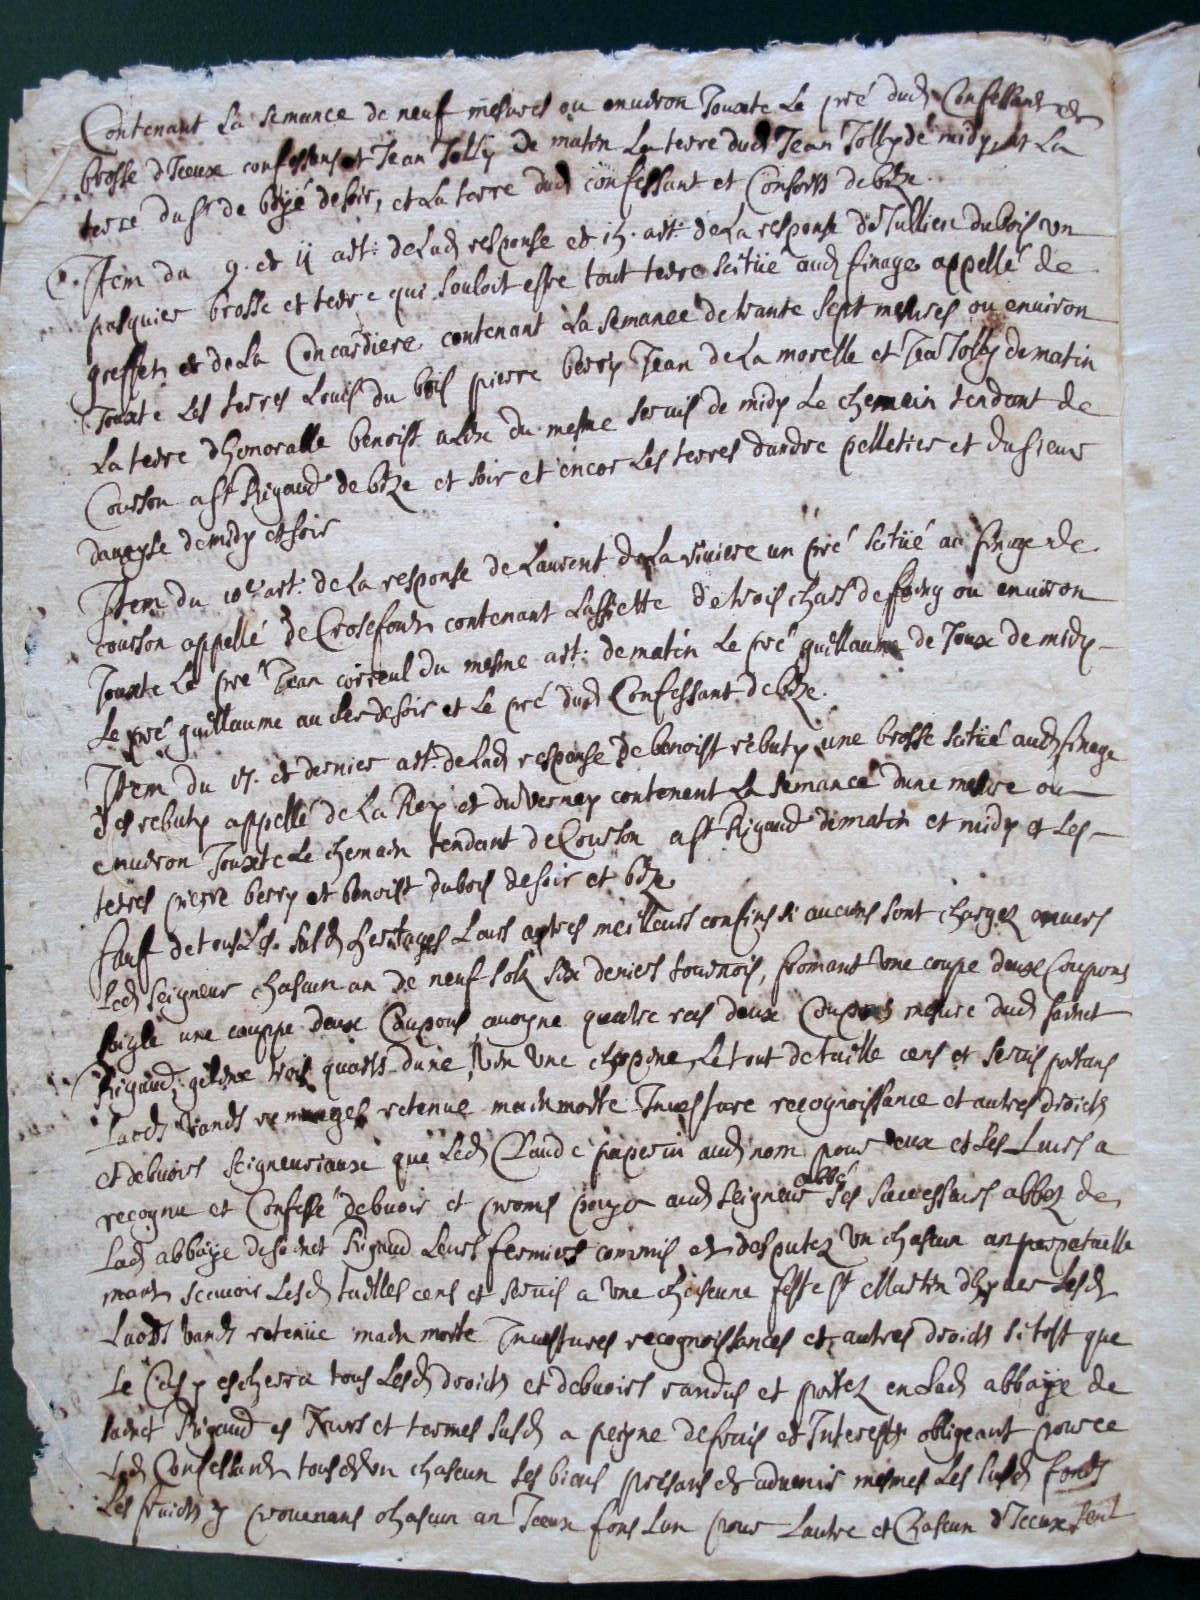 Contenant la semance de neuf mesures ou enuiron Jouxte le pré dud Confessant et
brosse d'Iceux confessans et Jean Jolly de matin la terre dud Jean Jolly de midy, et la
terre du sr de boyé de soir, et la terre dud confessant et Consorts de bize.
Item du 9. et 11 art: de lad response et ih. art: de la response de Jullien dubois un
pasquier brosse et terre qui souloit estre tout terre scitüé aud finage appellé de
greffet et de la Concardiere contenant la semance de trante sept mesures ou enuiron
Jouxte les terres Louis du bois pierre berry Jean de la morelle et Jean Jolly de matin
la terre d'honoralle benoist alix du mesme seruis de midy le chemin tendant de
Courson a st Rigaud de bize et soir et encor les terres d'andre pelletier et du sieur
de midy et soir
Item du 10e. art: de la response de Laurent de la riuiere un pré scitüé au finage de
courson appellé de Crosefont contenant l'assiette de trois chars de foing ou enuiron
Jouxte le pré Jean correul du mesme art: de matin le pré guillaume de Joux de midy
le pré guillaume de soir et le pré dud Confessant de bize.
Item du 17. et dernier art: de lad response de benoist rebuty une brosse scitüé aud finage
des rebuty appellé de la Rey et du verney contenent la semance d'une mesure ou
enuiron Jouxte le chemin tendant de Courson a st Rigaud de matin et midy et les
terres pierre berry et benoist dubois de soir et bize
sauf de tous les susd heritages leurs autres meilleurs confins si aucuns sont chargez enuers
led seigneur chascun an de neuf solz six deniers tournois, fromant une coupe deux Coupons
soigle une couppe deux Coupons auoyne quatre ras deux Coupons mesure dud sainct
Rigaud, geline trois quarts d'une, vin une choppine, le tout de taille cens et seruis portans
Laods vands retenue mainmorte Inuesture recognoissance et autres droicts
et debuoirs seigneuriaux que led Claude paperin aud nom pour eux et les Leurs a
recognu et Confessé debuoir et promis payer aud seigneur abbé ses successeurs abbez de
Lad abbaye de sainct Rigaud leurs fermiers commis et desputez un chascun an perpetuelle
ment scauoir lesd tailles cens et seruis a une chascune feste st Martin d'hyuer lesd
Laods vands retenüe main morte Inuestures recognoissances et autres droicts si tost que
le Cas y escherra tous lesd droicts et debuoirs randus et portez en lad abbaye de
sainct Rigaud es Jours et termes susd a peyne de frais et Interests obligeant pour ce
led Confessant tous et un chascun ses biens presans et aduenir mesmes les susd fonds
les fruicts y prouenans chascun an Iceux fons l'un pour l'autre et Chascun d'Iceux seul